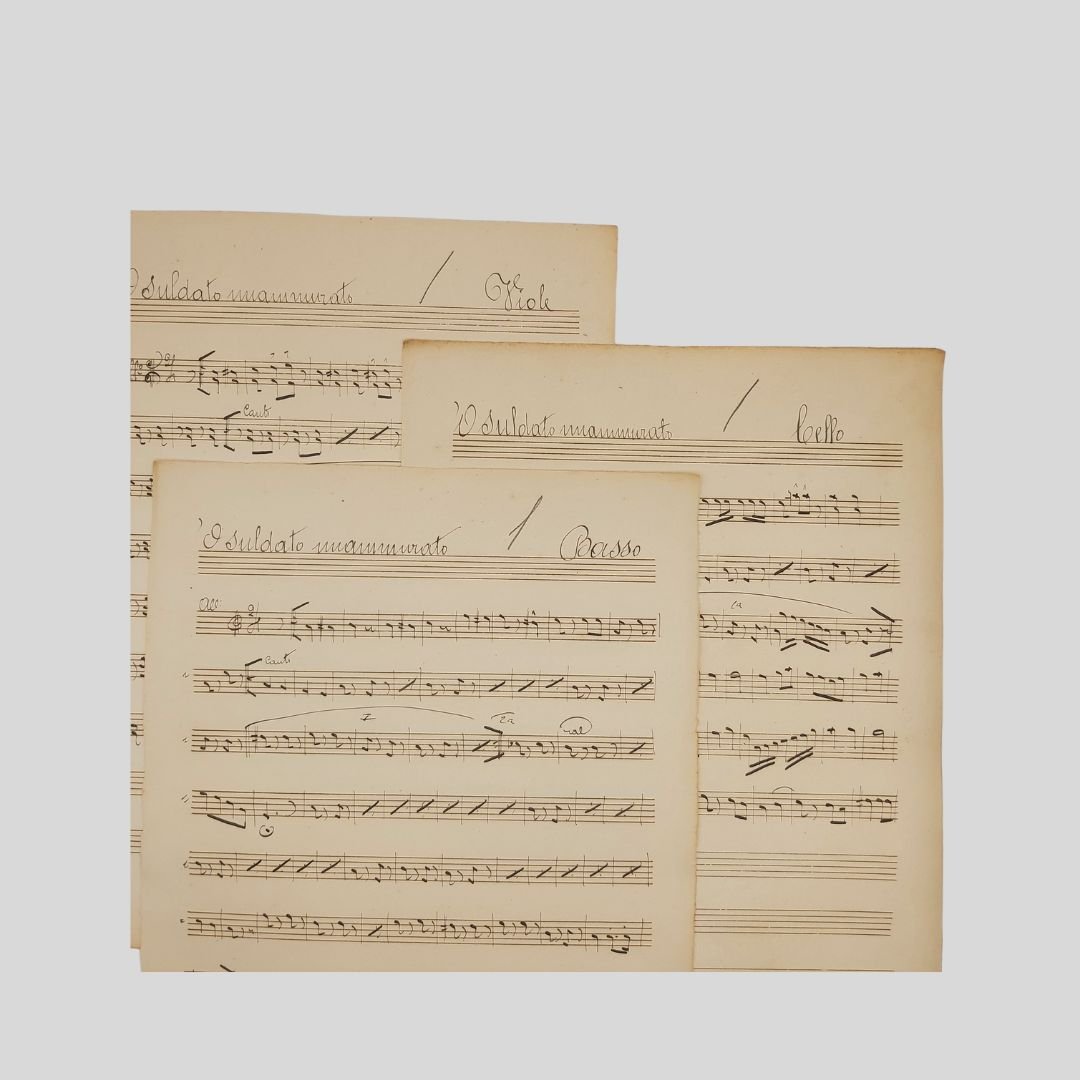 O suldato nnammurato / Viole
Cant
'O suldato nnammurato / Cello
2a
'O suldato nnammurato / Basso
All°
Canto
I
2a